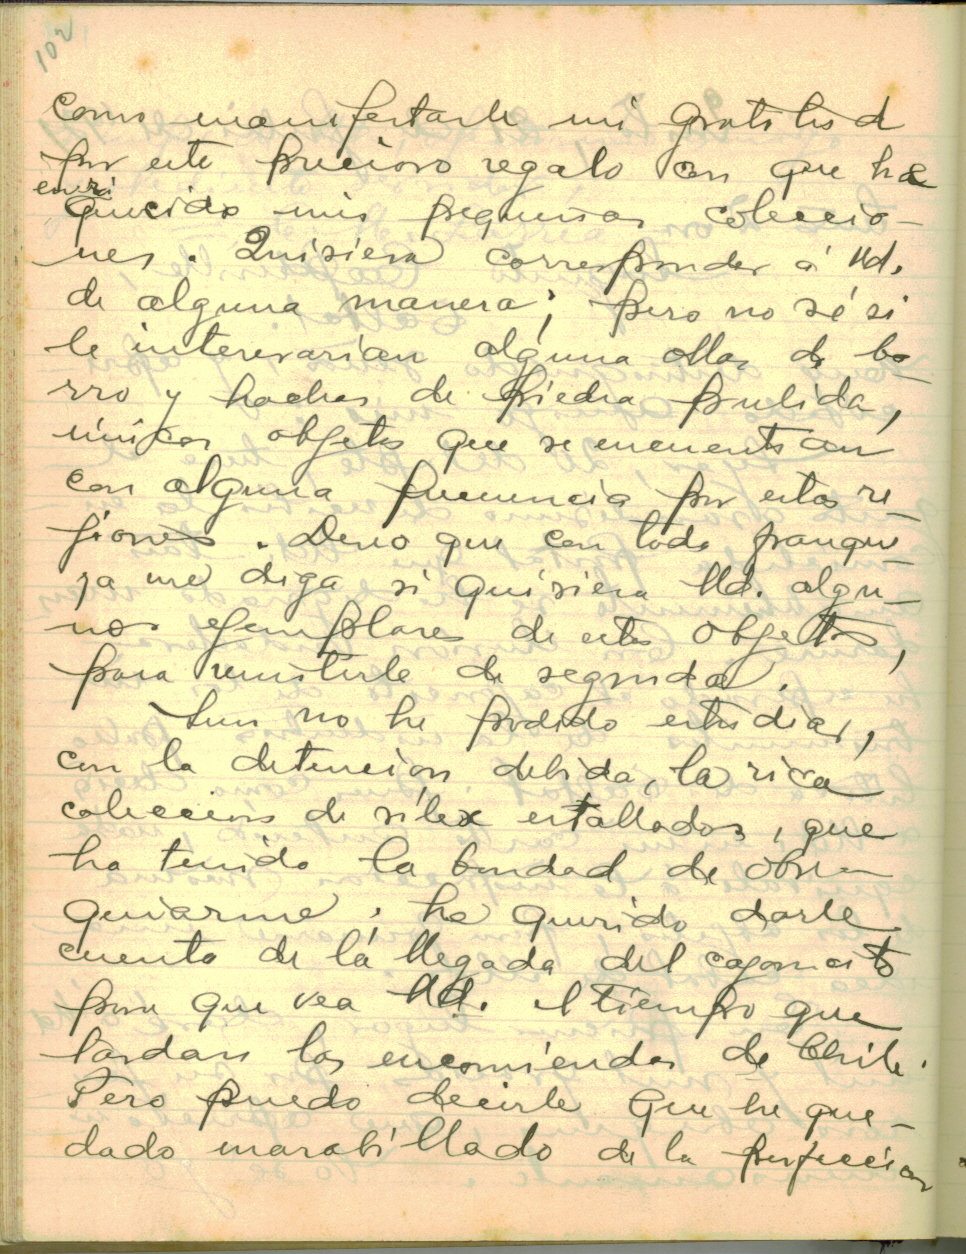 102
como manifestarle mi gratitud
por este precioso regalo con que ha
enri
quecido mis pequeñas coleccio-
nes. Quisiera corresponder á Ud.
de alguna manera; pero no sé si
le interesarian alguna ollas de ba-
rro y hachas de piedra pulida,
únicos objetos que se encuentran
con alguna frecuencia por estas re-
giones. Deseo que con toda franque-
za me diga si quisiera Ud. algu-
nos ejemplares de estos objetos,
para remitirle de seguida.
Aun no he podido estudiar,
con la detencion debida, la rica
coleccions de sílex estallados, que
ha tenido la bondad de obse-
quiarme; he querido darle
cuenta de la llegada del cajoncito
para que vea Ud. el tiempo que
tardan las encomiendas de Chile.
Pero puedo decirle que he que-
dado marabillado de la perfeccion